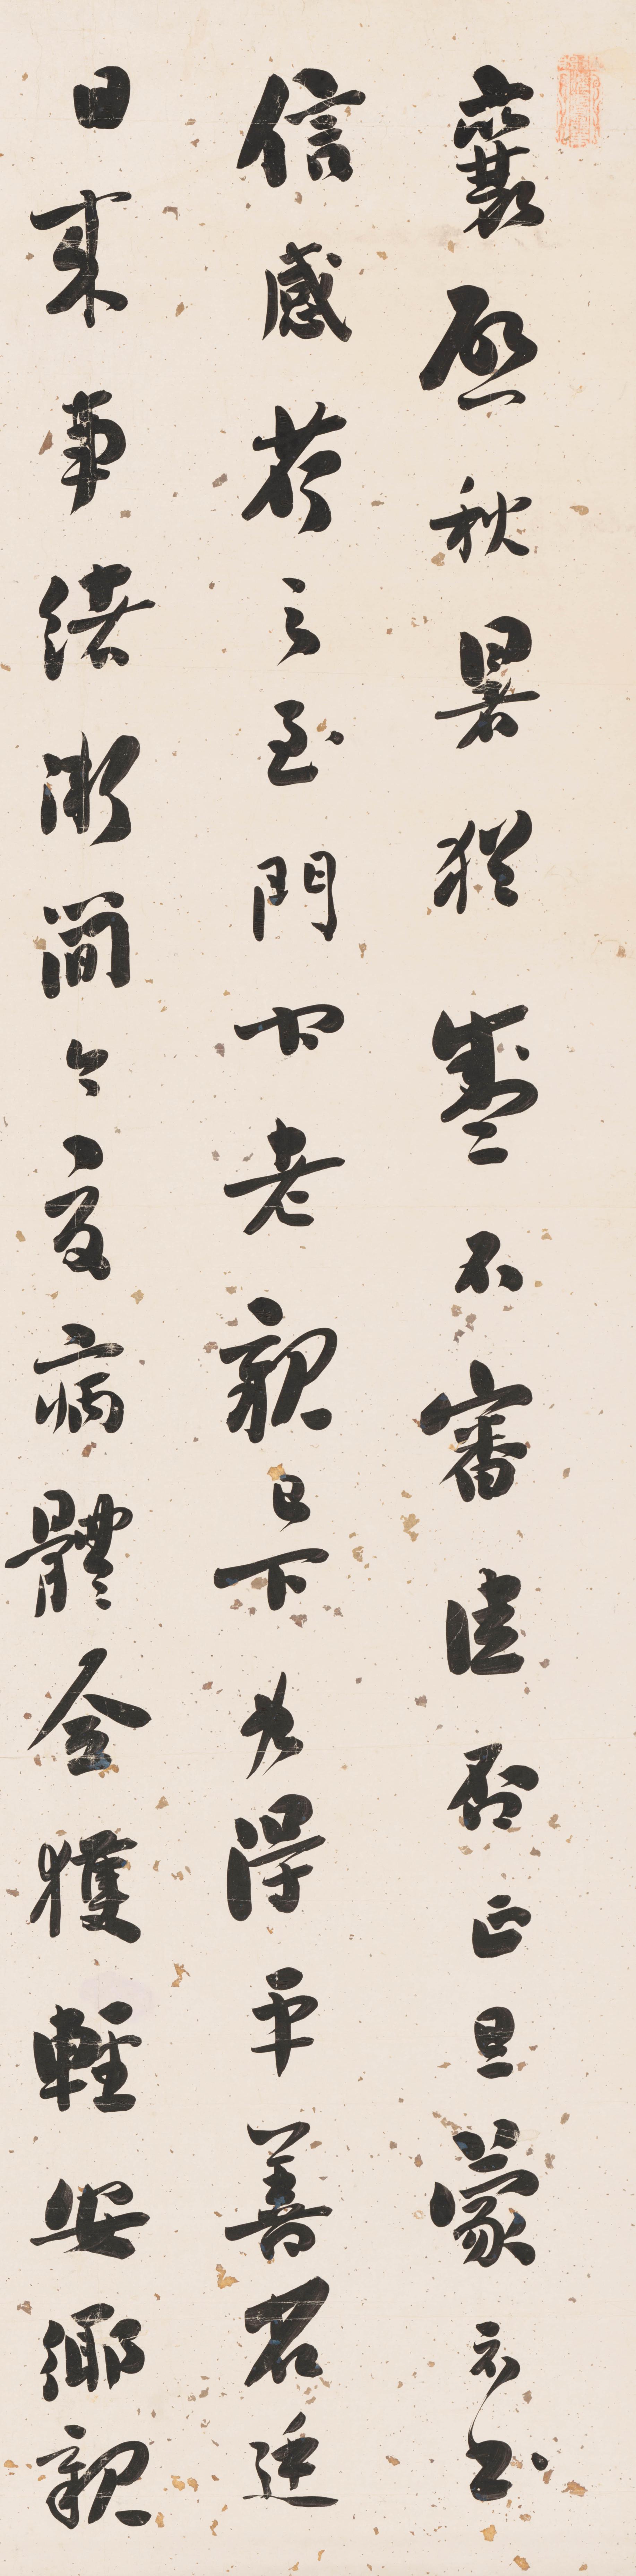 襄啟秋暑猶盛不審佳否正旦蒙示書
信感荷之至門下老親已下得平善近
日來事緒漸簡今夏病體全獲輕安鄉親